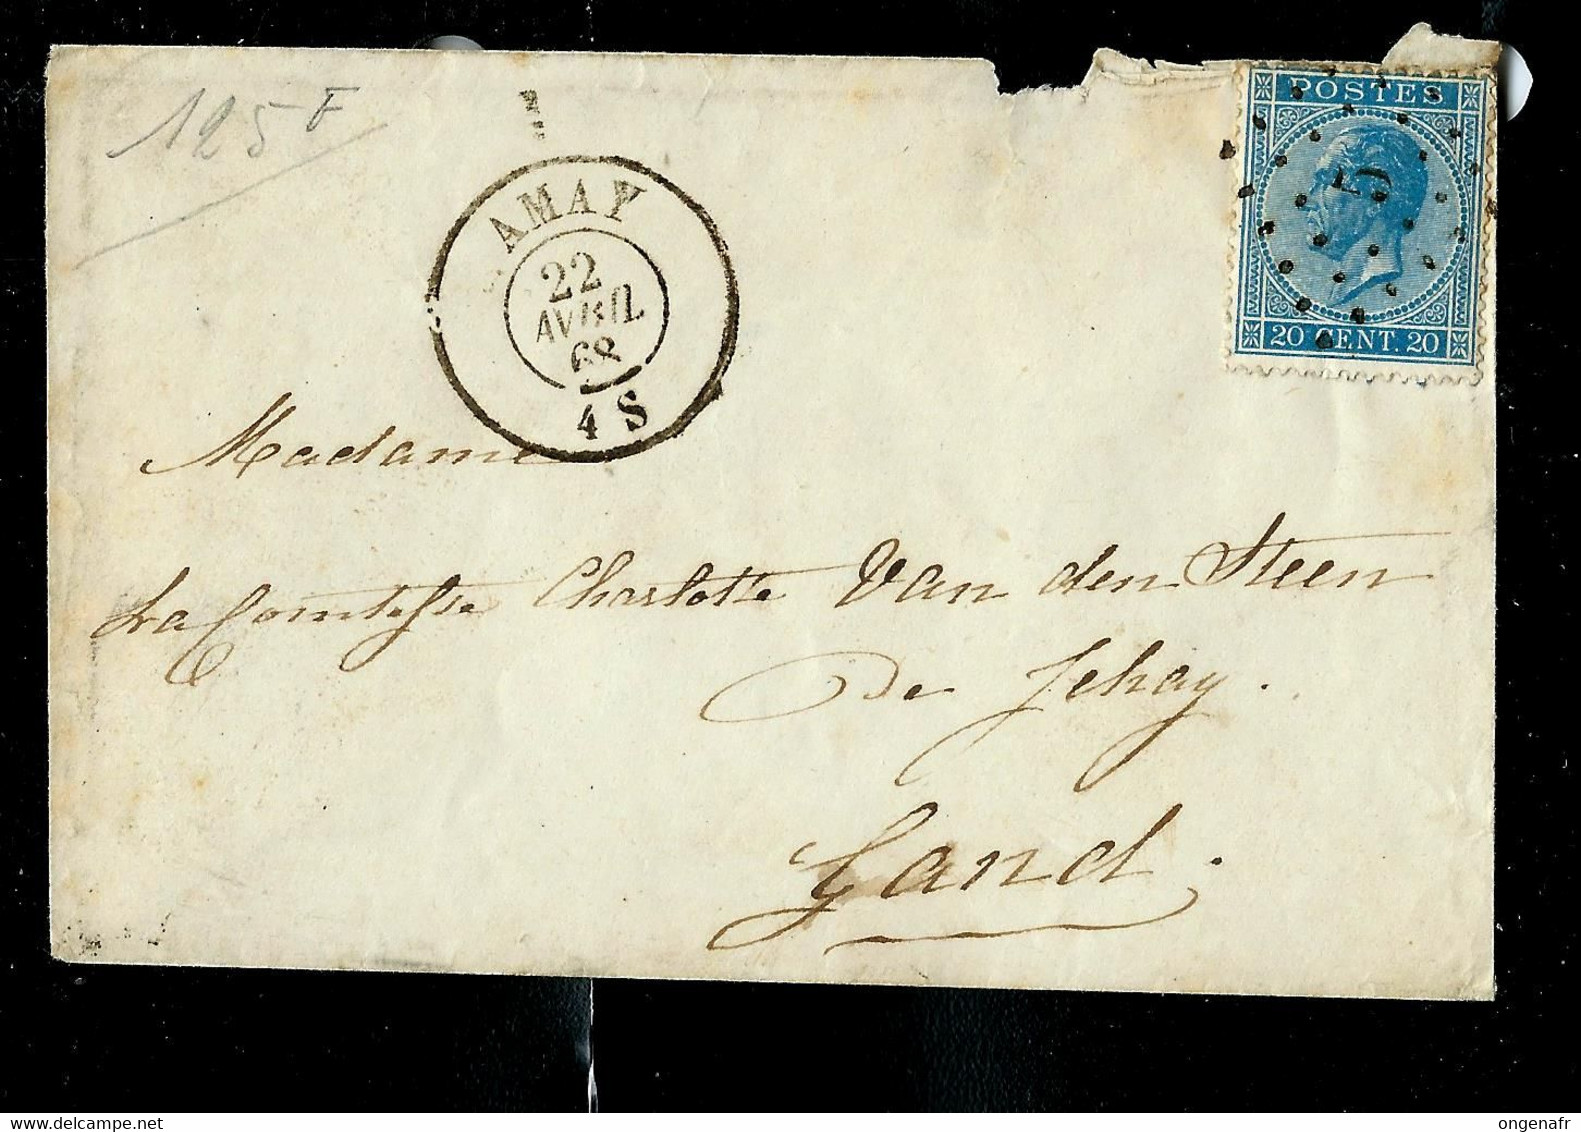 125 F
AMAY
22
AVRIL
68
4 S
POSTES
5
20 CENT. 20
Madame
La Comtesse Charlotte Van den Steen
De Jehay.
Gand.
delcampe.net
ongenafr